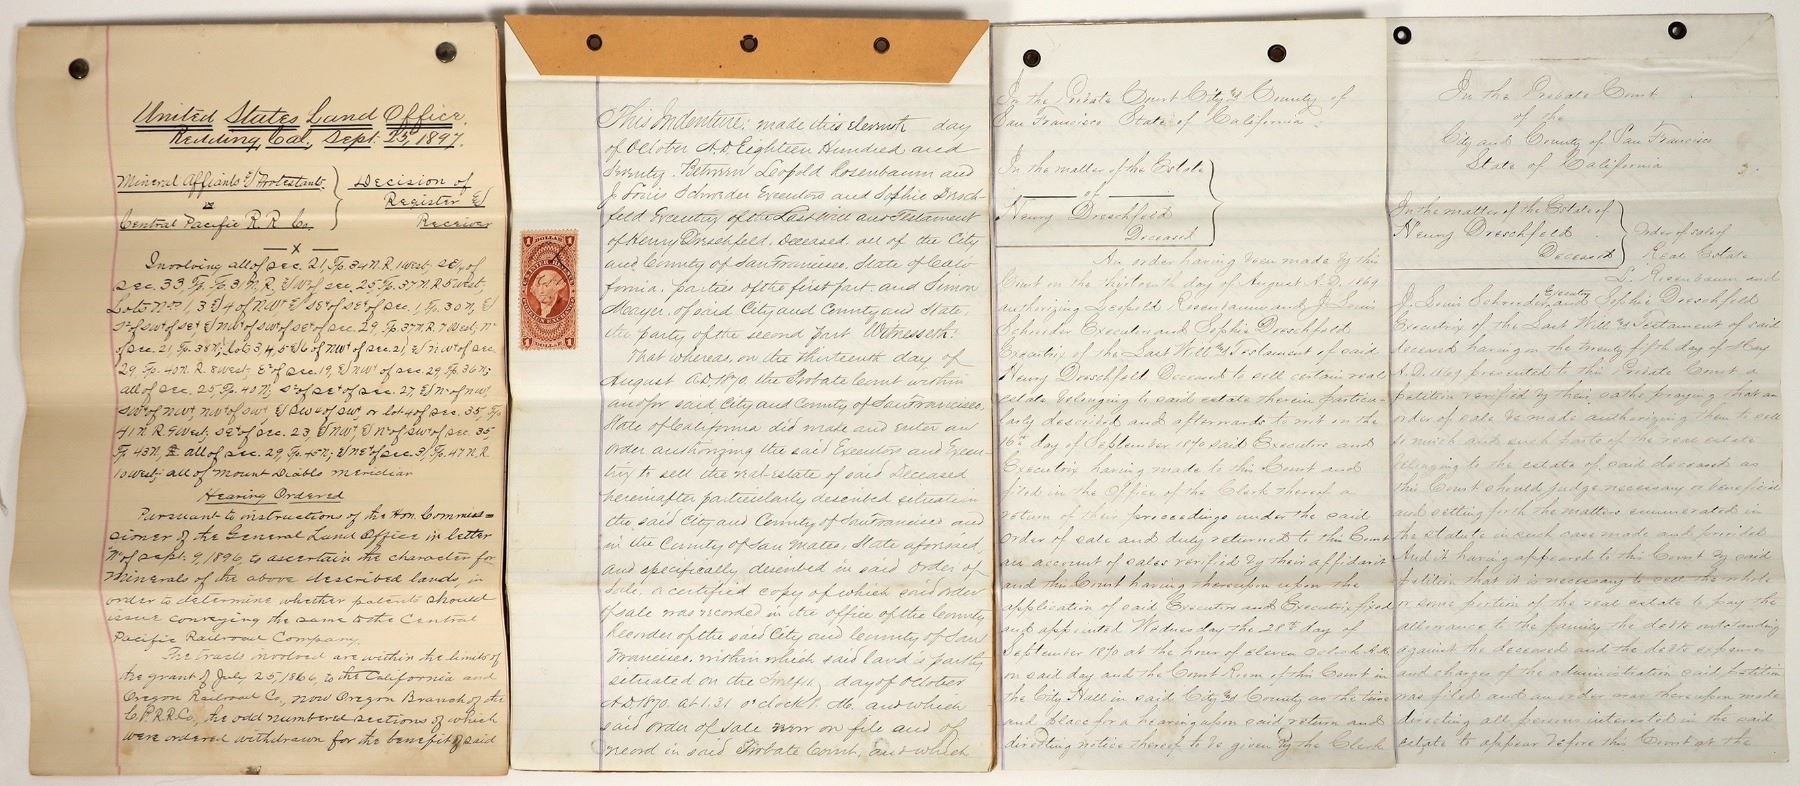 United States Land Office,
Redding, Cal., Sept. 25, 1897.
Mineral Affiants & Protestants
vs
Central Pacific R.R. Co.
Decision of
Register &
Receiver
—x—
Involving all of sec. 21, Tp. 34 N. R. 1 West; SE/4 of
sec. 33
all of sec. 29, Tp. 45 N;
10 West; all of Mount Diablo Meridian
Hearing Ordered
Pursuant to instruction of the Hon. Commis=
sioner of the General Land Office in letter
"N" of Sept. 9, 1896, to ascertain the character for
minerals of the above described lands, in
order to determine whether patents should
issue conveying the same to the Central
Pacific Railroad Company.
The tracts involved are within the limits of
the grant of July 25, 1866, to the California and
Oregon Railroad Co., now Oregon Branch of the
C.P.R.R. Co., the odd numbered sections of which
were ordered withdrawn for the benefit of said
This Indenture; made this eleventh day
of October A.D. Eighteen Hundred and
Seventy. Between Leopold Rosenbaum and
J. Louis Schroeder Executors and Sophie Dresch-
feld Executrix of the Last Will and Testament
of Henry Dreschfeld, Deceased, all of the City
and County of San Francisco, State of Cali
fornia, parties of the first part, and Simon
Mayer, of said City and County and State,
the party of the second part Witnesseth:
That whereas, on the thirteenth day of
August A.D. 1870, the Probate Court within
and for said City and County of San Francisco,
State of California did make and enter an
order authorizing the said Executors and Execu-
trix to sell the real estate of said Deceased
hereinafter particularly described situate in
the said City and County of San Francisco and
in the County of San Mateo, State aforesaid,
and specifically described in said order of
Sale, a certified copy of which said order
of sale was recorded in the office of the County
Recorder of the said City and County of San
Francisco, within which said land is partly
situated on the Twelfth day of October
A.D. 1870. at 1.31 o'clock P.M. and which
said order of Sale now on file and of
record in said Probate Court, and which
1 DOLLAR 1
1 DOLLAR 1
In the Probate Court City & County of
San Francisco State of California:
In the matter of the Estate
of
Henry Dreschfeld
Deceased
An order having been made by this
Court on the thirteenth day of August A.D. 1869
authorizing Leopold Rosenbaum and J. Louis
Schroeder Executors and Sophie Dreschfeld
Executrix of the Last Will & Testament of said
Henry Dreschfeld Deceased to sell certain real
estate belonging to said estate therein particu-
larly described and afterwards to wit on the
16th day of September 1870 said Executors and
Executrix having made to this Court and
filed in the Office of the Clerk thereof a
return of their proceedings under the said
order of sale and duly returned to this Court
an account of sales verified by their affidavit
and this Court having thereupon upon the
application of said Executors and Executrix fixed
and appointed Wednesday the 28th day of
September 1870 at the hour of eleven o'clock A.M.
on said day and the Court Room of this Court in
the City Hall in said City & County as the time
and place for a hearing upon said return and
directing notice thereof to be given by the Clerk
In the Probate Court
of the
City and County of San Francisco
State of California
In the matter of the Estate of
Henry Dreschfeld
Deceased
Order of sale of
Real Estate
L. Rosenbaum and
J. Louis Schroeder Executors and Sophie Dreschfeld
Executrix of the Last Will & Testament of said
deceased having on the twenty fifth day of May
A.D. 1869 presented to this Probate Court a
petition verified by their oaths praying that an
order of sale be made authorizing them to sell
so much and such parts of the real estate
belonging to the estate of said deceased as
this Court should judge necessary or beneficial
and setting forth the matters enumerated in
the statute in such case made and provided
And it having appeared to this Court by said
petition that it is necessary to sell the whole
or some portion of the real estate to pay the
allowance to the family the debts outstanding
against the deceased and the debts expenses
and charges of the administration said petition
was filed and an order was thereupon made
directing all persons interested in the said
estate to appear before this Court at the